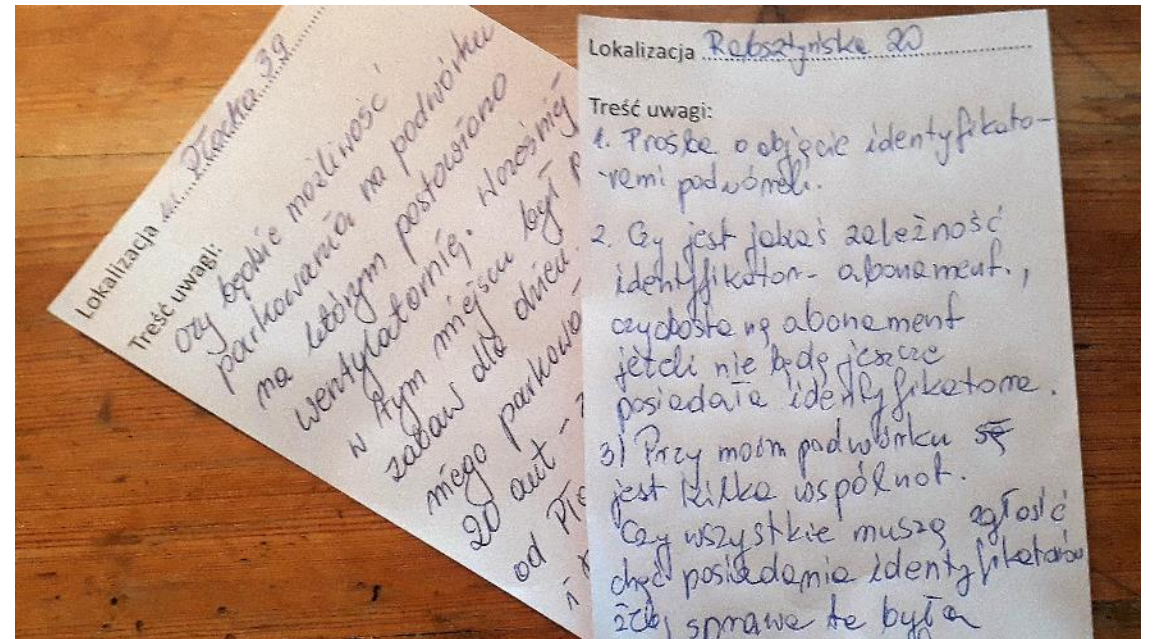 Lokalizacja ul. Płocka 39
Treść uwagi:
czy będzie możliwość
parkowania na podwórku
na którym postawiono
wentylatornię. Wcześniej
w tym miejscu był p
zabaw dla dzieci.
niego parkowa
20 aut -
od Pło
i
Lokalizacja Rabsztyńska 20
Treść uwagi:
1. Prośba o objęcie identyfikato-
rami podwórek.
2. Czy jest jakaś zależność
identyfikator - abonament.,
czy dostanę abonament
jeżeli nie będę jeszcze
posiadała identyfikatora.
3) Przy moim podwórku są
jest kilka wspólnot.
Czy wszystkie muszą zgłosić
chęć posiadania identyfikatorów
żeby sprawa ta była